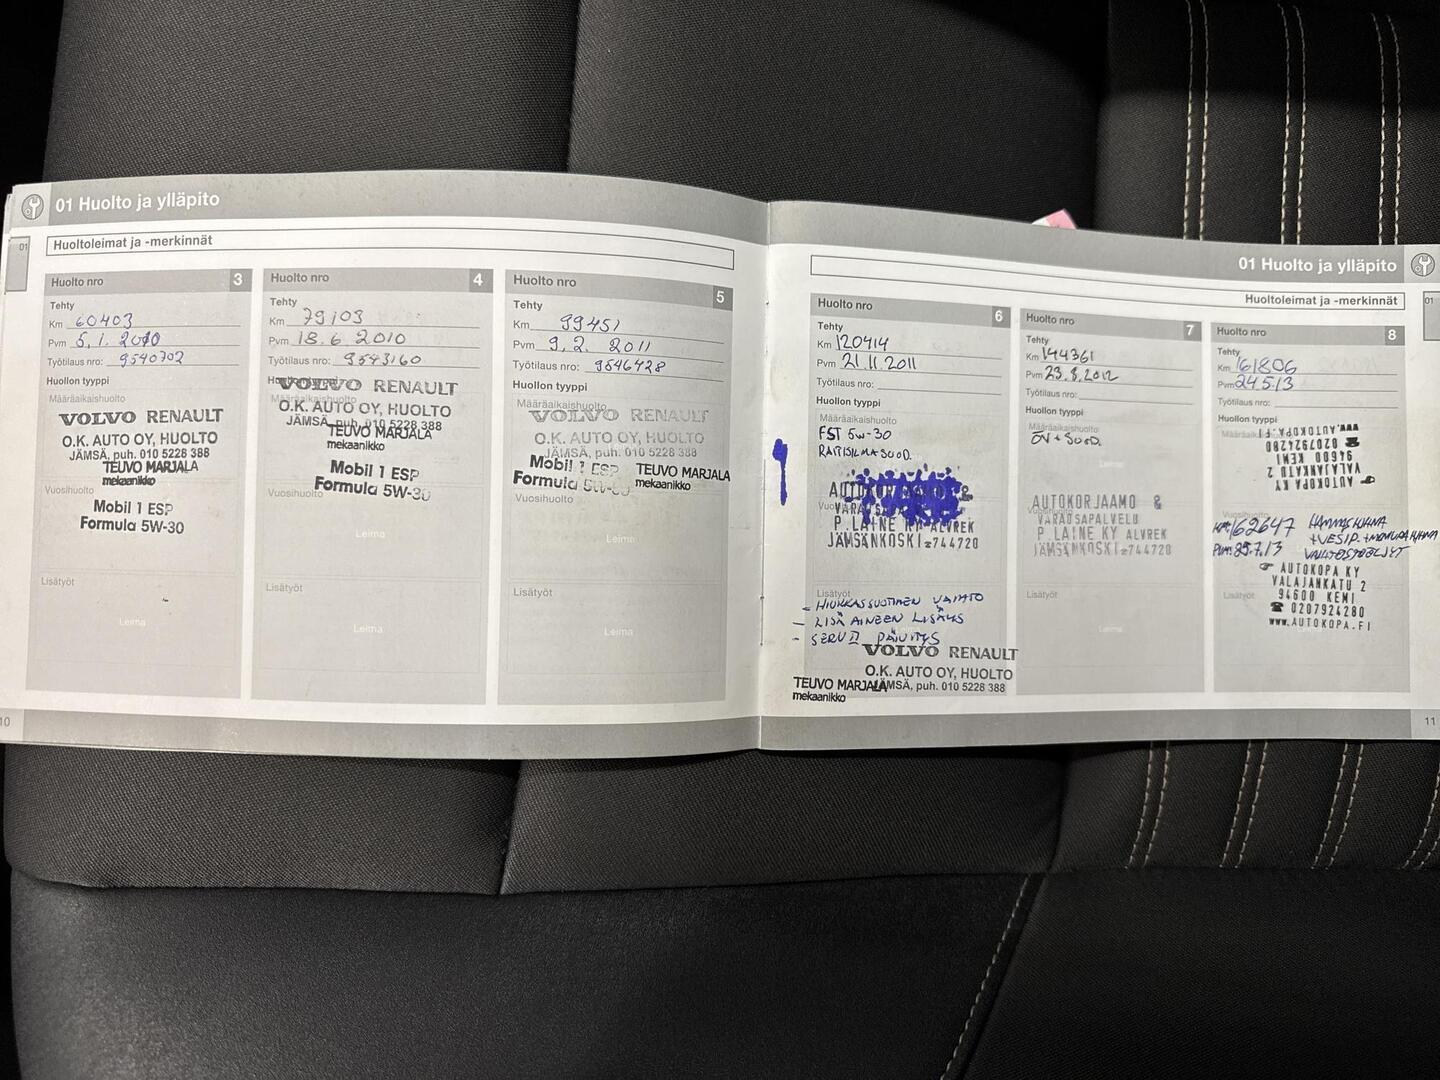 01 Huolto ja ylläpito
01
Huoltoleimat ja -merkinnät
Huolto nro 3
Tehty
Km 60403
Pvm 5.1.2010
Työtilaus nro: 9540702
Huollon tyyppi
Määräaikaishuolto
VOLVO RENAULT
O.K. AUTO OY, HUOLTO
JÄMSÄ, puh. 010 5228 388
TEUVO MARJALA
mekaanikko
Vuosihuolto
Mobil 1 ESP
Formula 5W-30
Lisätyöt
Leima
Huolto nro 4
Tehty
Km 79103
Pvm 18.6.2010
Työtilaus nro: 9543160
VOLVO RENAULT
O.K. AUTO OY, HUOLTO
JÄMSÄ, puh. 010 5228 388
TEUVO MARJALA
mekaanikko
Mobil 1 ESP
Vuosihuolto
Formula 5W-30
Leima
Lisätyöt
Leima
Huolto nro 5
Tehty
Km 99451
Pvm 9.2.2011
Työtilaus nro: 9546428
Huollon tyyppi
Määräaikaishuolto
VOLVO RENAULT
O.K. AUTO OY, HUOLTO
JÄMSÄ, puh. 010 5228 388
Mobil 1 ESP
Formula 5W-30
TEUVO MARJALA
mekaanikko
Vuosihuolto
Leima
Lisätyöt
Leima
10
01 Huolto ja ylläpito
01
Huoltoleimat ja -merkinnät
Huolto nro 6
Tehty
Km 120414
Pvm 21.11.2011
Työtilaus nro:
Huollon tyyppi
Määräaikaishuolto
FST 5W-30
P. LAINE KY ALVREK
JÄMSÄNKOSKI 744720
Lisätyöt
- HIUKKASSUOTIMEN VAIHTO
- LISÄAINEEN LISÄYS
- PÄIVITYS
VOLVO RENAULT
O.K. AUTO OY, HUOLTO
JÄMSÄ, puh. 010 5228 388
TEUVO MARJALA
mekaanikko
Huolto nro 7
Tehty
Km 144361
Pvm 23.8.2012
Työtilaus nro:
Huollon tyyppi
Määräaikaishuolto
ÖV + SUOD.
Leima
AUTOKORJAAMO &
VARAOSAPALVELU
P. LAINE KY ALVREK
JÄMSÄNKOSKI 744720
Lisätyöt
Leima
Huolto nro 8
Tehty
Km 161806
Pvm 24.5.13
Työtilaus nro:
Huollon tyyppi
AUTOKOPA KY
VALAJANKATU 2
94600 KEMI
☎ 0207924280
WWW.AUTOKOPA.FI
Vuosihuolto
KM: 162647 HAMMASHIHNA
+ VESIP. + MONIURAHIHNA
PVM: 25.7.13 VAIHTEISTOÖLJYT
Lisätyöt
☞ AUTOKOPA KY
VALAJANKATU 2
94600 KEMI
☎ 0207924280
WWW.AUTOKOPA.FI
11